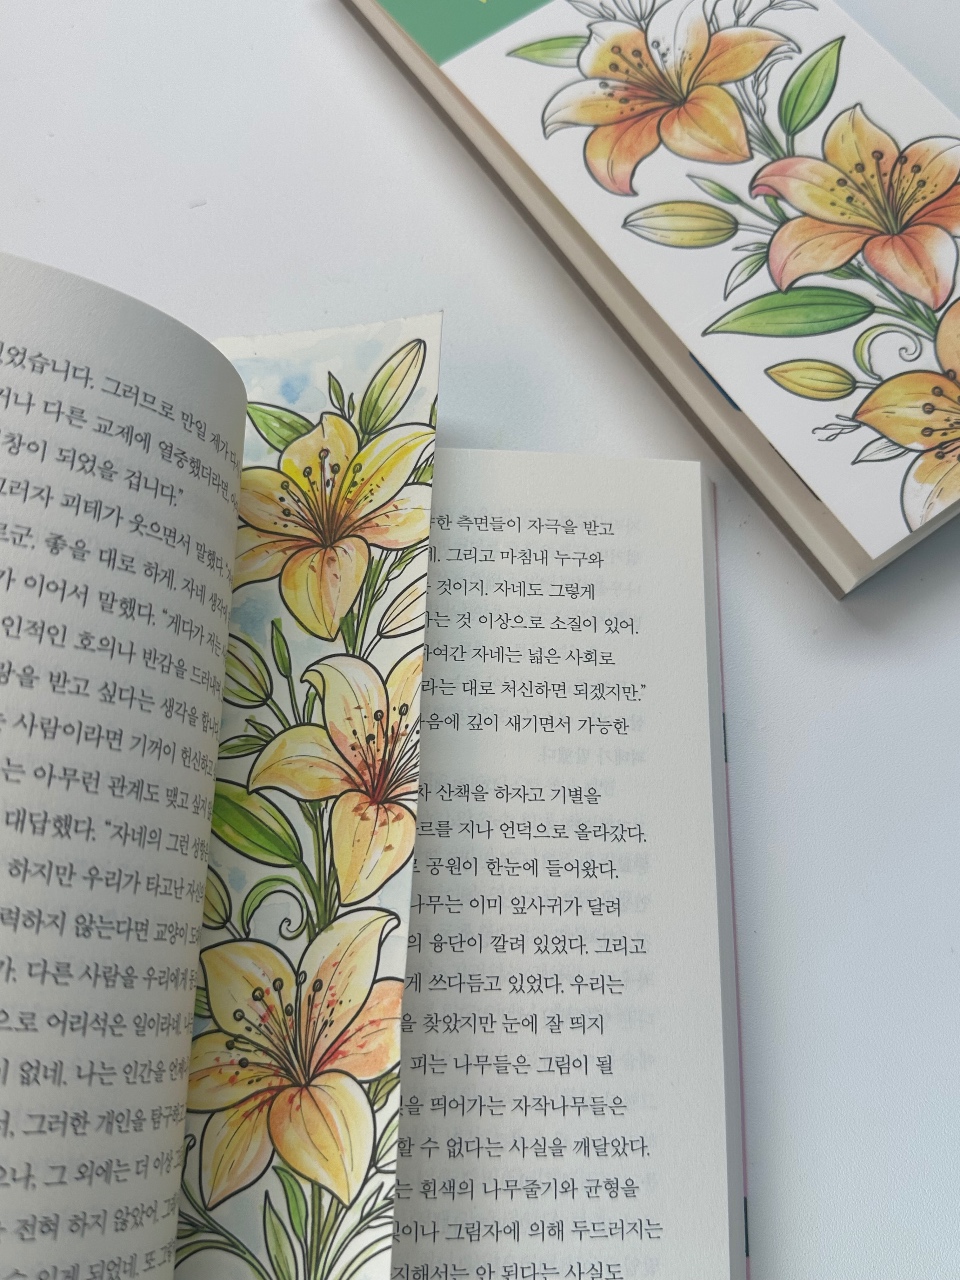 었습니다. 그러므로 만일 제가
거나 다른 교제에 열중했더라면,
창이 되었을 겁니다.”
그러자 괴테가 웃으면서 말했다.
좋을 대로 하게. 자네
이어서 말했다. “게다가 저는
인적인 호의나 반감을 드러내며
받고 싶다는 생각을 합니다
사람이라면 기꺼이 헌신하고
는 아무런 관계도 맺고 싶지
대답했다. “자네의 그런 성향은
하지만 우리가 타고난
력하지 않는다면 교양이
다른 사람을 우리에게
으로 어리석은 일이라네.
없네. 나는 인간을
그러한 개인을 탐구하고
그 외에는 더 이상
전혀 하지 않았어.
있게 되었네. 또
한 측면들이 자극을 받고
그리고 마침내 누구와
것이지. 자네도 그렇게
는 것 이상으로 소질이 있어.
하여간 자네는 넓은 사회로
라는 대로 처신하면 되겠지만.”
음에 깊이 새기면서 가능한
산책을 하자고 기별을
르를 지나 언덕으로 올라갔다.
공원이 한눈에 들어왔다.
나무는 이미 잎사귀가 달려
의 융단이 깔려 있었다. 그리고
게 쓰다듬고 있었다. 우리는
을 찾았지만 눈에 잘 띄지
피는 나무들은 그림이 될
을 띄어가는 자작나무들은
할 수 없다는 사실을 깨달았다.
는 흰색의 나무줄기와 균형을
이나 그림자에 의해 두드러지는
지해서는 안 된다는 사실도